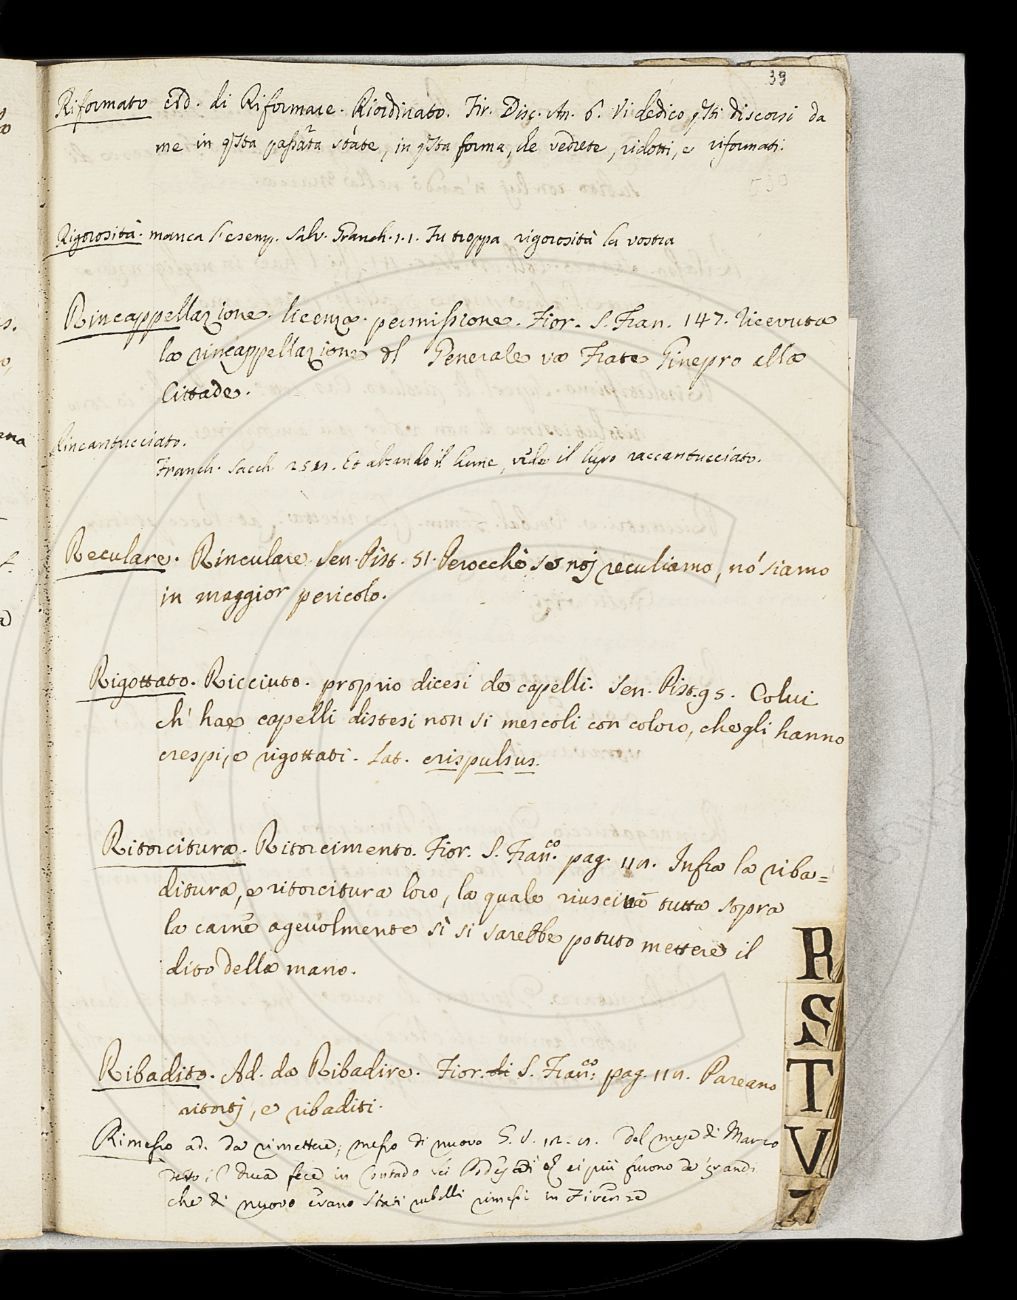 39
Riformato Ad. di Riformare. Riordinato. Fir. Disc. An. 6. Vi dedico qsti discorsi da
me in qsta passata state, in qsta forma, che vedrete, ridotti, e riformati.
Rigorosità. manca l'esemp. Salv. Granch. 1. 1. Fu troppa rigorosità la vostra
Rincappellazione. licenza. permissione. Fior. S. Fran. 147. Ricevuta
la rincappellazione dl Generale va Frate Ginepro alla
Cittade.
Rincantucciato.
Franch. Sacch. Et alzando il lume, vide il lupo raccantucciato.
Reculare. Rinculare Sen. Pist. 51. Perocchè se noj reculiamo, noi siamo
in maggior pericolo.
Rigottato. Ricciuto. proprio dicesi de capelli. Sen. Pist. 95. Colui
ch' hae capelli distesi non si mescoli con coloro, che gli hanno
crespi, e rigottati. Lat. crispulsus.
Ritorcitura. Ritorcimento. Fior. S. Franco. pag. 119. Infra la riba=
ditura, e ritorcitura loro, la quale riusciva tutta sopra
la carne agevolmente sì si sarebbe potuto mettere il
dito della mano.
Ribadito. Ad. da Ribadire. Fior. di S. Franco. pag. 119. Pareano
ritorti, e ribaditi.
Rimesso ad. da rimettere; messo di nuovo G. V. Del mese di Marzo
il duca fece in Contado
che di nuovo erano stati rubelli rimessi in Firenze
R
S
T
V
Z